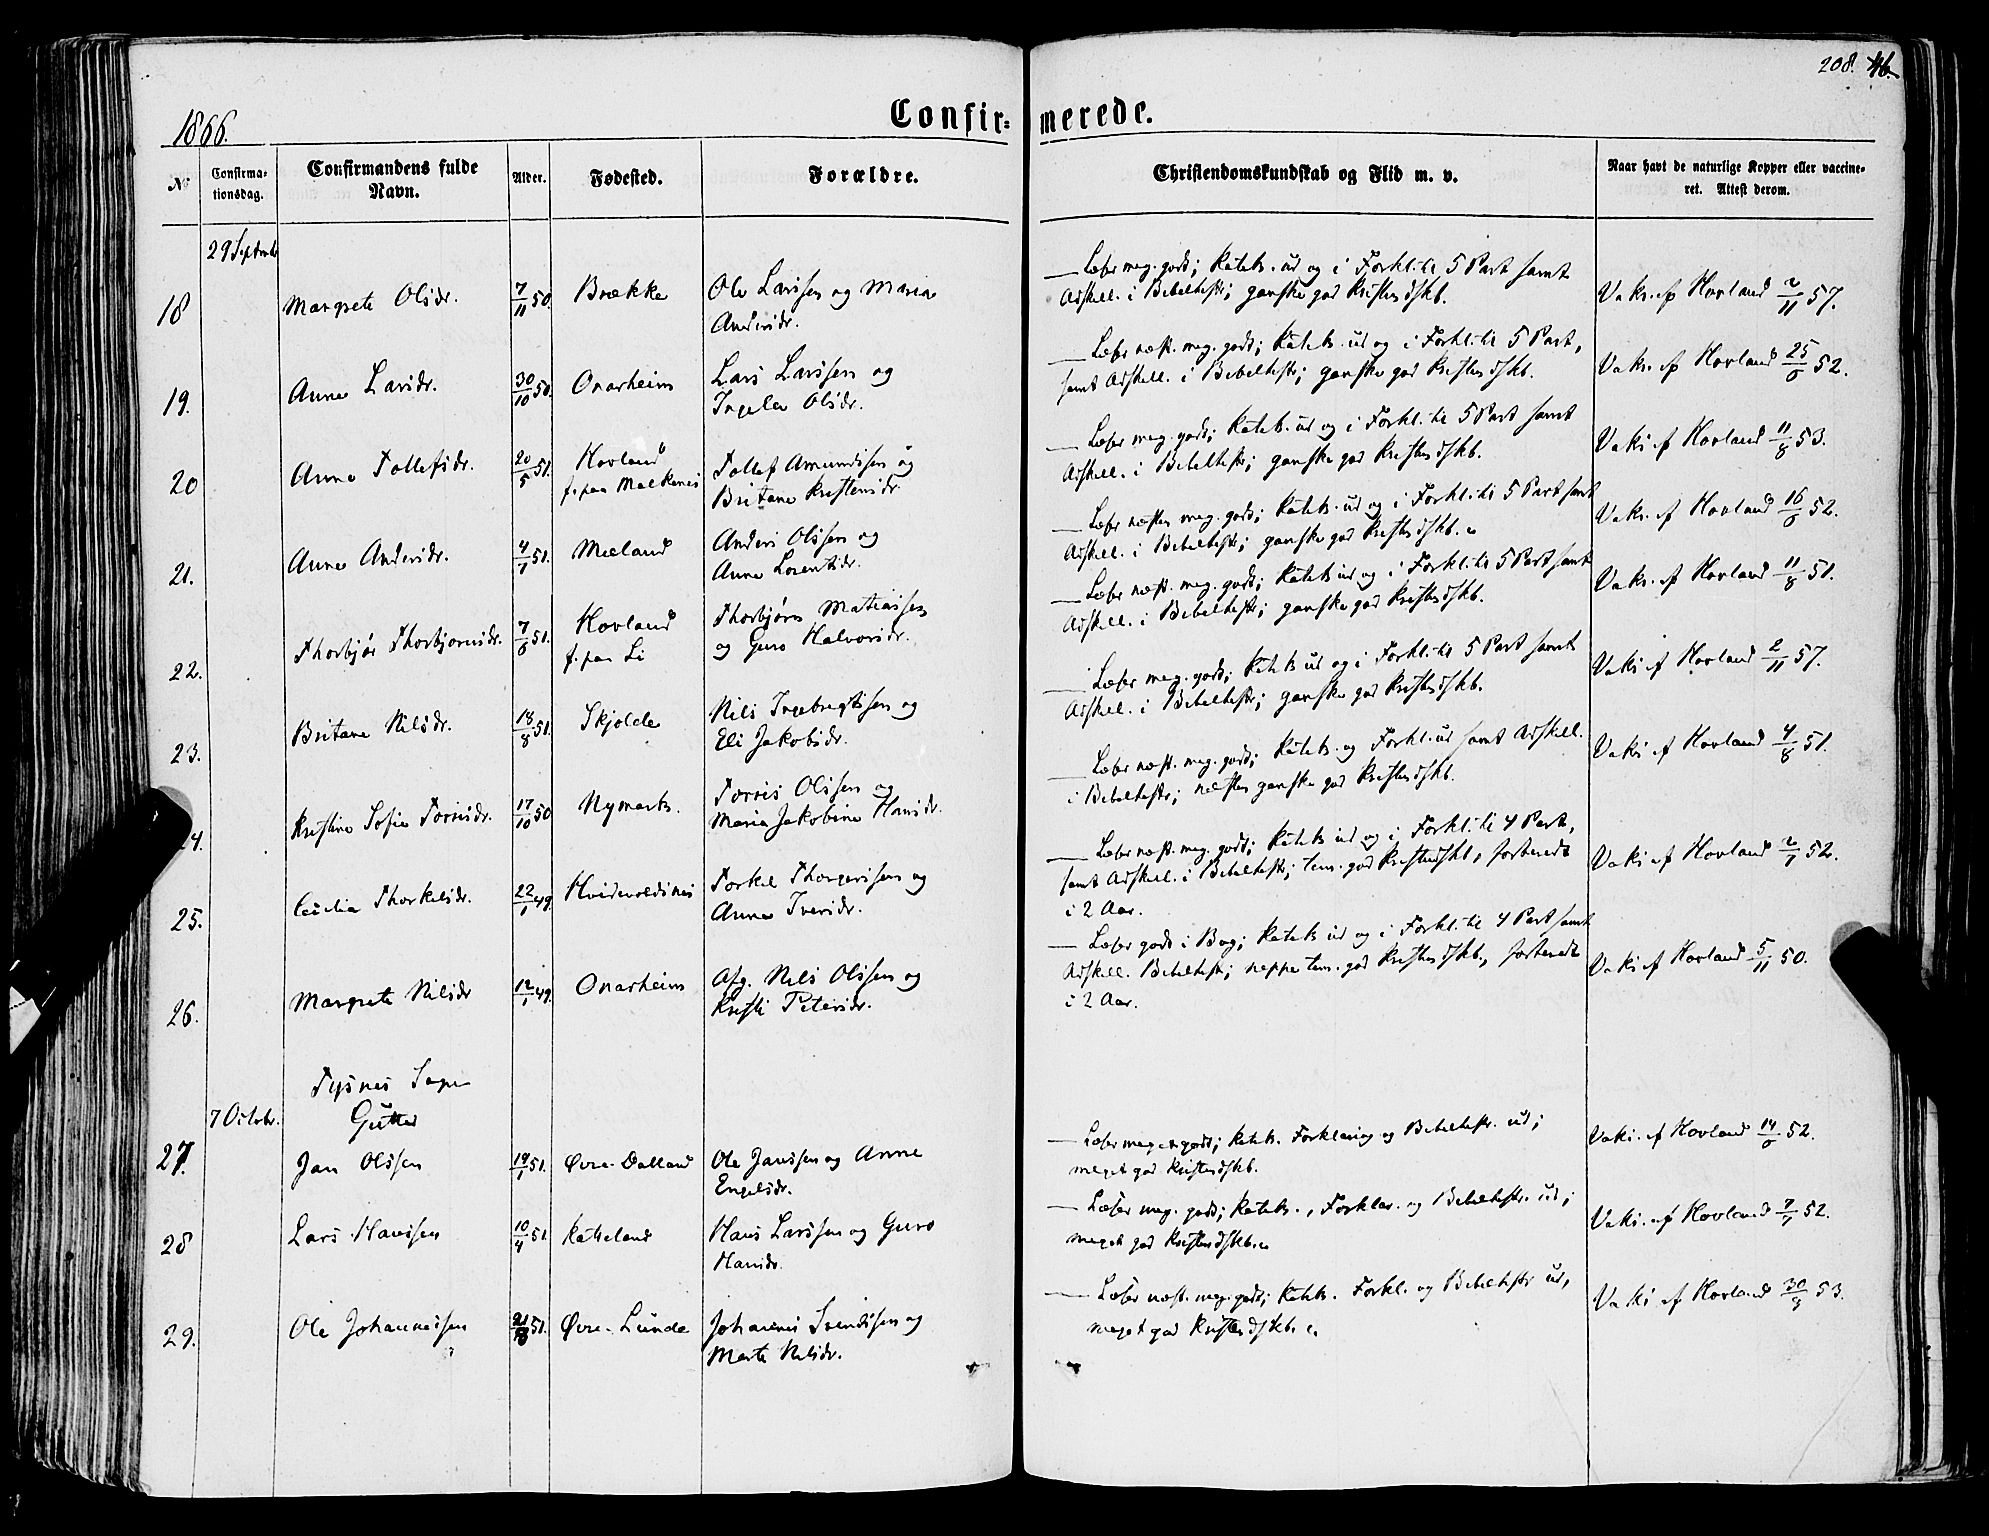 208. 46.
1866.
Confir= merede.
№
Confirma-
tionsdag.
Confirmandens fulde
Navn.
Alder.
Fødested.
Forældre.
Christendomskundskab og Flid m. v.
Naar havt de naturlige Kopper eller vaccine-
ret. Attest derom.
29 Septembr
18 Margrete Olsdr. 7/11 50. Brække Ole Larssen og Maria
Andersdr.
— Læser meg. godt; Katek. ud og i Forkl. til 5 Part samt
Adskell. i Bibelhist; ganske god Kristendskb.
Vaks. af Hovland 2/11 57.
19. Anna Larsdr. 30/10 50. Onarheim Lars Larssen og
Ingelev Olsdr.
— Læser næst. meg. godt; Katek. ud og i Forkl. til 5 Part,
samt Adskell. i Bibelhist; ganske god Kristendskb.
Vaks. af Hovland 25/6 52.
20 Anna Tollefsdr. 20/5 51. Hovland
f. paa Malkenes
Tollef Amundssen og
Britane Kristensdr
— Læser meg. godt; Katek. ud og i Forkl. til 5 Part samt
Adskell. i Bibelhist; ganske god Kristendskb.
Vaks af Hovland 11/8 53.
21. Anna Andersdr. 4/1 51. Mæland Anders Olssen og
Anna Lorentsdr.
— Læser næsten meg. godt; Katek. ud og i Forkl. til 5 Part samt
Adskell. i Bibelhist; ganske god Kristendskb.
Vaks. af Hovland 16/6 52.
22. Thorbjør Thorbjørnsdr. 7/6 51. Hovland
f. paa Li
Thorbjørn Matiassen
og Guro Halvorsdr.
— Læser næst. meg. godt; Katek ud og i Forkl. til 5 Part samt
Adskell. i Bibelhist; ganske god Kristendskb.
Vaks. af Hovland 11/8 51.
23. Britane Nilsdr. 18/8 51. Skjolde Nils Ingebrigtssen og
Eli Jakobsdr.
— Læser meg. godt; Katek ud og i Forkl. til 5 Part samt
Adskell. i Bibelhist; ganske god Kristendskb.
Vaks af Hovland 2/11 57.
24. Kristine Sofie Tørrisdr. 17/10 50 Nymark. Tørris Olssen og
Maria Jakobine Hansdr.
— Læser næst. meg. godt; Katek. og Forkl. ud samt Adskell.
i Bibelhist; næsten ganske god Kristendskb.
Vaks af Hovland 4/8 51.
25. Cecilia Thorkelsdr. 22/1 49. Hvideroldsnes Torkel Thorgerssen og
Anna Iversdr.
— Læser næst. meg. godt; Katek ud og i Forkl. til 4 Part,
samt Adskell. i Bibelhist; tem. god Kristendskb, forberedt
i 2 Aar.
Vaks af Hovland 2/1 52.
26. Margrete Nilsdr 12/1 49. Onarheim Afg. Nils Olssen og
Kristi Petersdr.
— Læser godt i Bog; Katek ud og i Forkl. til 4 Part samt
Adskell. Bibelhist; neppe tem. god Kristendskb, forberedt
i 2 Aar.
Vaks af Hovland 5/11 50.
Tysnes Sogn
7 Octobr. Gutter
27. Jan Olssen 19/1 51. Øvre-Dalland Ole Janssen og Anne
Engelsdr.
— Læser meget godt; Katek. Forklaring og Bibelhistr. ud;
meget god Kristendskb.
Vaks. af Hovland 14/6 52.
28 Lars Hanssen 10/4 51 Katteland Hans Larssen og Guro
Hansdr.
— Læser meg. godt; Katek., Forklar. og Bibelhistr. ud;
meget god Kristendskb.
Vaks. af Hovland 7/1 52.
29. Ole Johannessen 51. Øvre-Lunde Johannes Svendssen og
Marta Nilsdr.
— Læser næst. meg. godt; Katek. Forkl. og Bibelhistr ud,
meget god Kristendskb.
Vaks af Hovland 30/9 53.